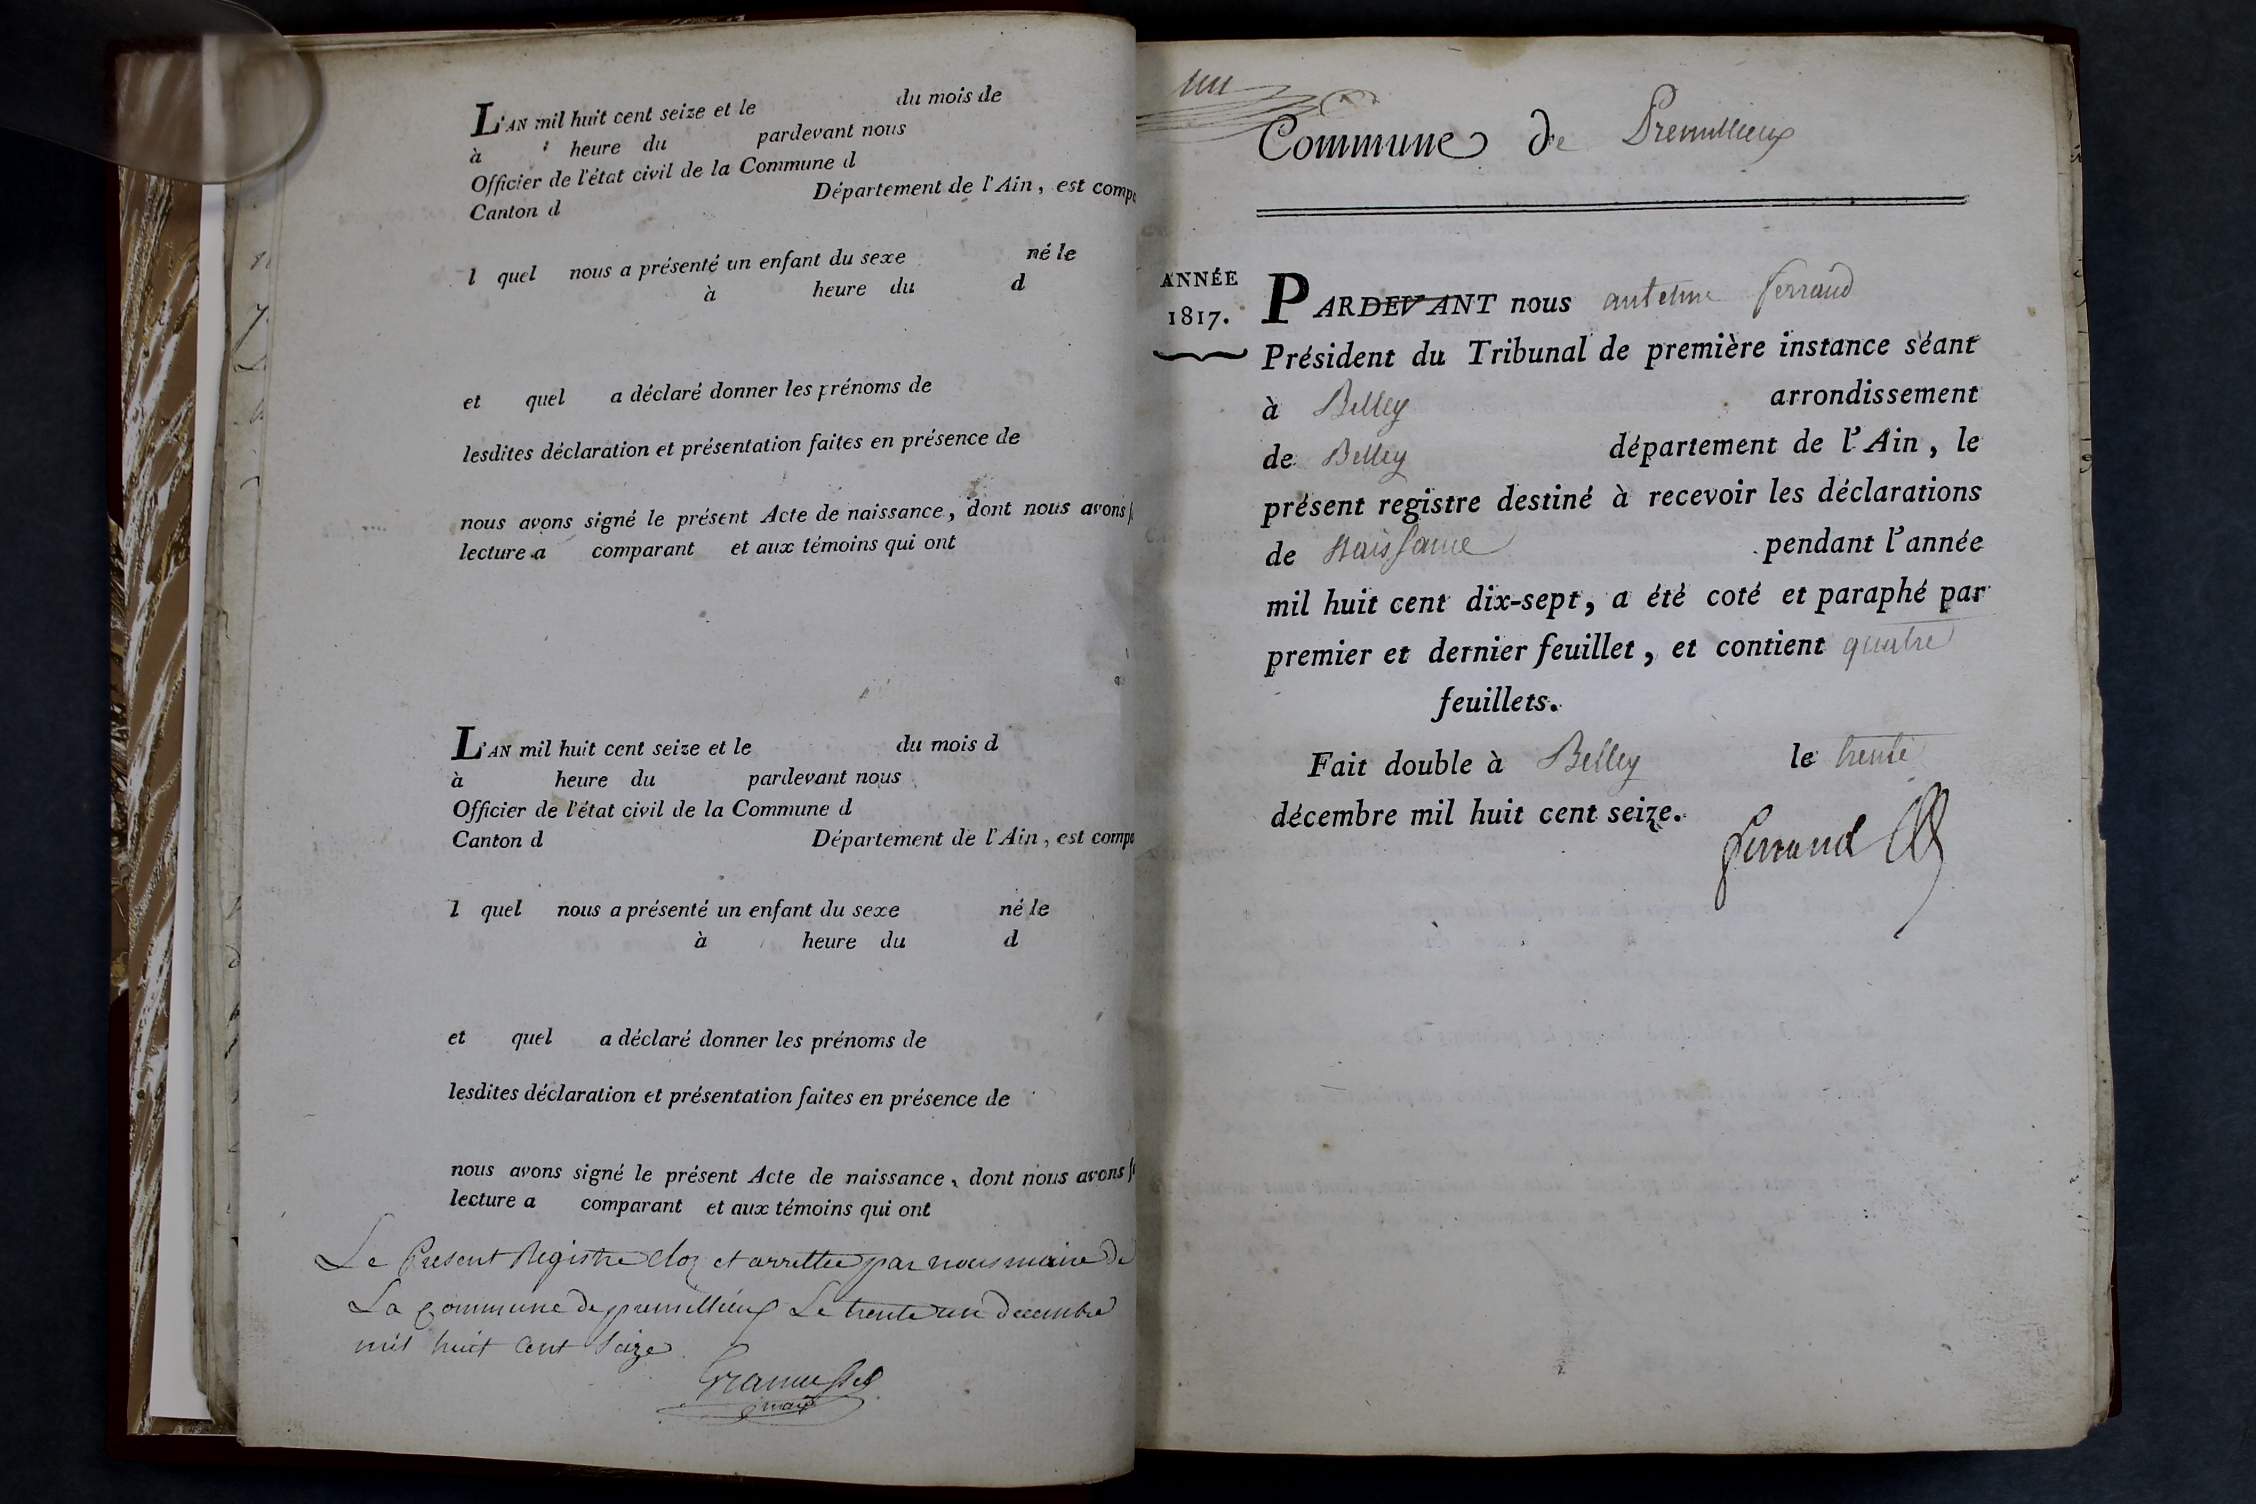 L'AN mil huit cent seize et le du mois de
à heure du pardevant nous
Officier de l'état civil de la Commune d
Canton d Département de l'Ain, est comp
l quel nous a présenté un enfant du sexe né le
à heure du d
et quel a déclaré donner les prénoms de
lesdites déclaration et présentation faites en présence de
nous avons signé le présent Acte de naissance, dont nous avons
lecture a comparant et aux témoins qui ont
L'AN mil huit cent seize et le du mois d
à heure du pardevant nous
Officier de l'état civil de la Commune d
Canton d Département de l'Ain, est comp
l quel nous a présenté un enfant du sexe né le
à heure du d
et quel a déclaré donner les prénoms de
lesdites déclaration et présentation faites en présence de
nous avons signé le présent Acte de naissance, dont nous avons
lecture a comparant et aux témoins qui ont
Le Present Registre cloz et arrettee par nous maire de
La Commune de premillieux Le trente un decembre
mil huit Cent Seize
maire
un
Commune de Premillieux
ANNÉE
1817.
PARDEVANT nous antelme ferrand
Président du Tribunal de première instance séant
à Belley arrondissement
de Belley département de l'Ain, le
présent registre destiné à recevoir les déclarations
de Naissance pendant l'année
mil huit cent dix-sept, a été coté et paraphé par
premier et dernier feuillet, et contient quatre
feuillets.
Fait double à Belley le trente
décembre mil huit cent seize.
ferrand